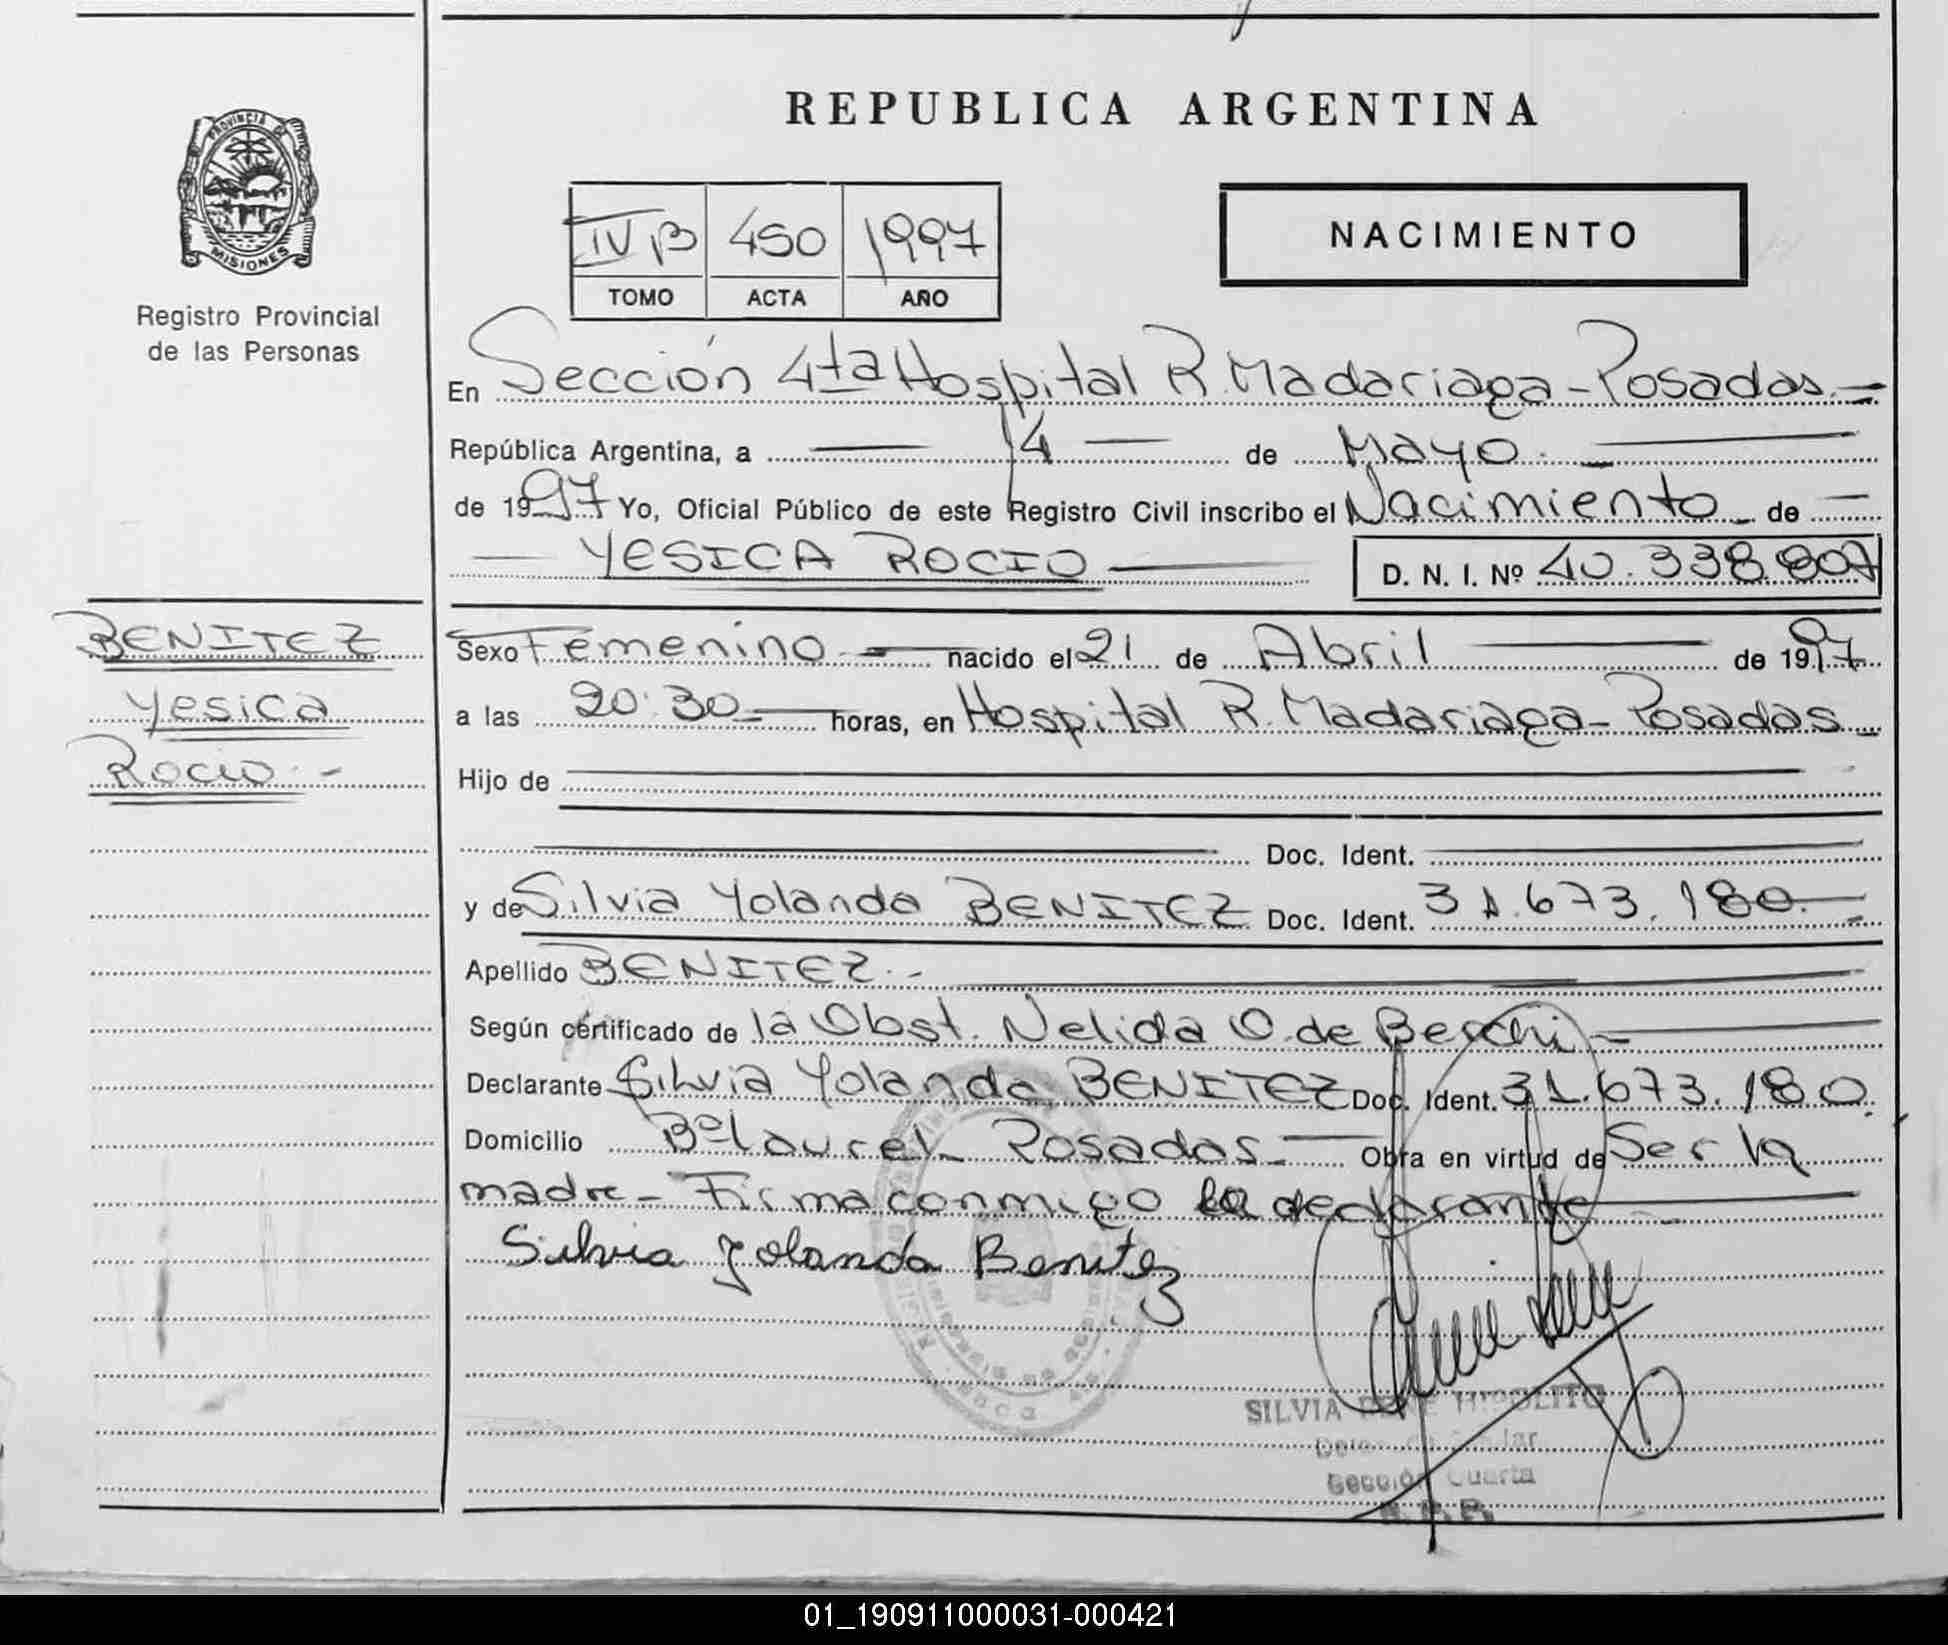 REPUBLICA ARGENTINA
PROVINCIA DE
MISIONES
Registro Provincial
de las Personas
IV B 450 1997
TOMO ACTA AÑO
NACIMIENTO
En Sección 4ta Hospital R. Madariaga - Posadas. -
República Argentina, a 14 de Mayo.
de 1997 Yo, Oficial Público de este Registro Civil inscribo el Nacimiento de
YESICA ROCIO D. N. I. Nº 40.338.807
BENITEZ
Yesica
Rocio. -
Sexo Femenino nacido el 21 de Abril de 1997
a las 20:30 horas, en Hospital R. Madariaga - Posadas
Hijo de
Doc. Ident.
y de Silvia Yolanda BENITEZ Doc. Ident. 31.673.180.
Apellido BENITEZ. -
Según certificado de la Obst. Nelida O. de
Declarante Silvia Yolanda BENITEZ Doc. Ident. 31.673.180.
Domicilio Bº Laurel Posadas Obra en virtud de Ser la
madre - Firma conmigo la declarante
Silvia Yolanda Benitez
SILVIA RENE HIPOLITO
Sección Cuarta
01_190911000031-000421